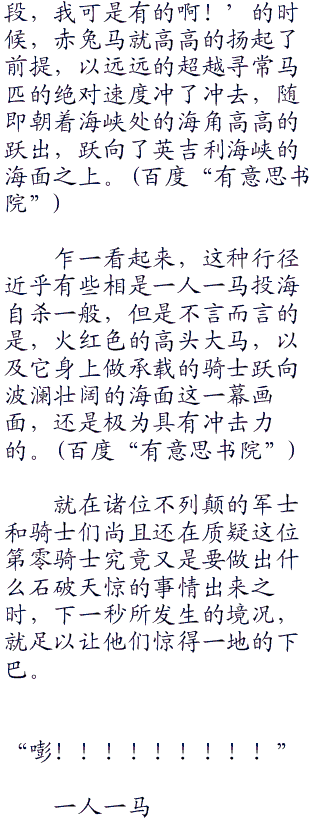 段，我可是有的啊！’的时
候，赤兔马就高高的扬起了
前提，以远远的超越寻常马
匹的绝对速度冲了冲去，随
即朝着海峡处的海角高高的
跃出，跃向了英吉利海峡的
海面之上。(百度“有意思书
院”)
乍一看起来，这种行径
近乎有些相是一人一马投海
自杀一般，但是不言而言的
是，火红色的高头大马，以
及它身上做承载的骑士跃向
波澜壮阔的海面这一幕画
面，还是极为具有冲击力
的。(百度“有意思书院”)
就在诸位不列颠的军士
和骑士们尚且还在质疑这位
第零骑士究竟又是要做出什
么石破天惊的事情出来之
时，下一秒所发生的境况，
就足以让他们惊得一地的下
巴。
“嘭！！！！！！！！！”
一人一马